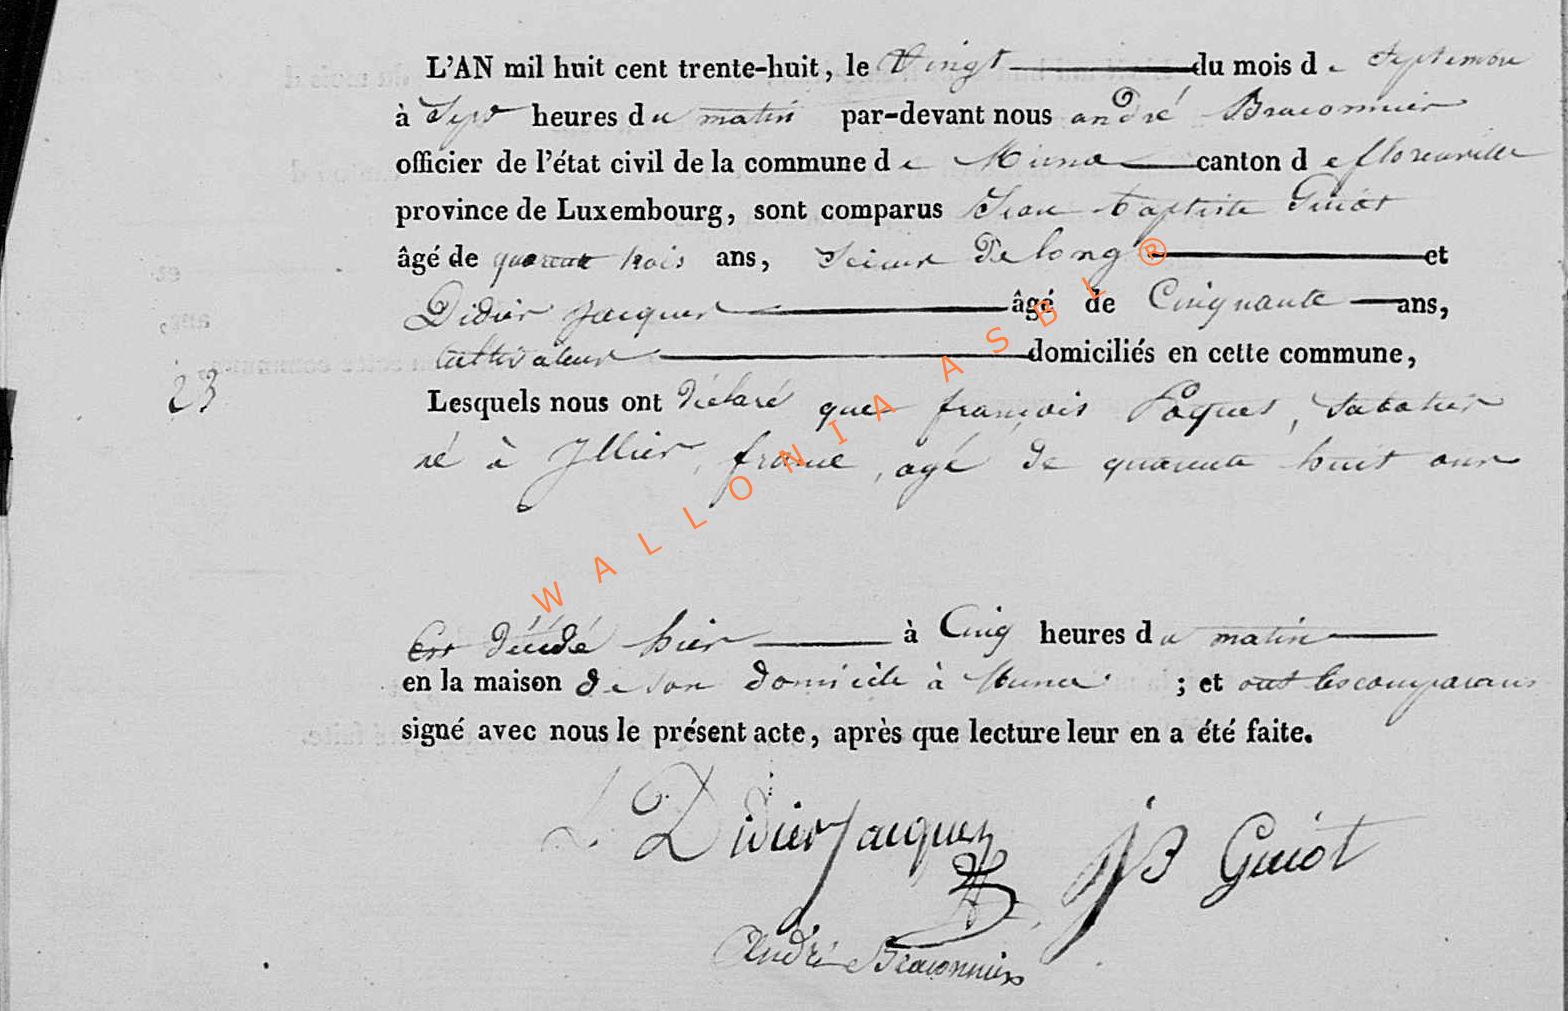 L'AN mil huit cent trente-huit, le Vingt du mois de Septembre
à Sept heures du matin par-devant nous andré Braconnier
officier de l'état civil de la commune de Muno canton de florenville
province de Luxembourg, sont comparus Jean baptiste Guiot
âgé de quarante trois ans, Scieur De long et
Didier Jacques âgé de Cinquante ans,
Cultivateur domiciliés en cette commune,
23
Lesquels nous ont Déclaré que françois Paquet, Sabotier
né à Jllier, france, agé de quarante huit ans
Est Décédé hier à Cinq heures du matin
en la maison de son domicile à Muno ; et ont les comparans
signé avec nous le présent acte, après que lecture leur en a été faite.
Didier Jacques JB Guiot
André Braconnier
WALLONIA ASBL ®